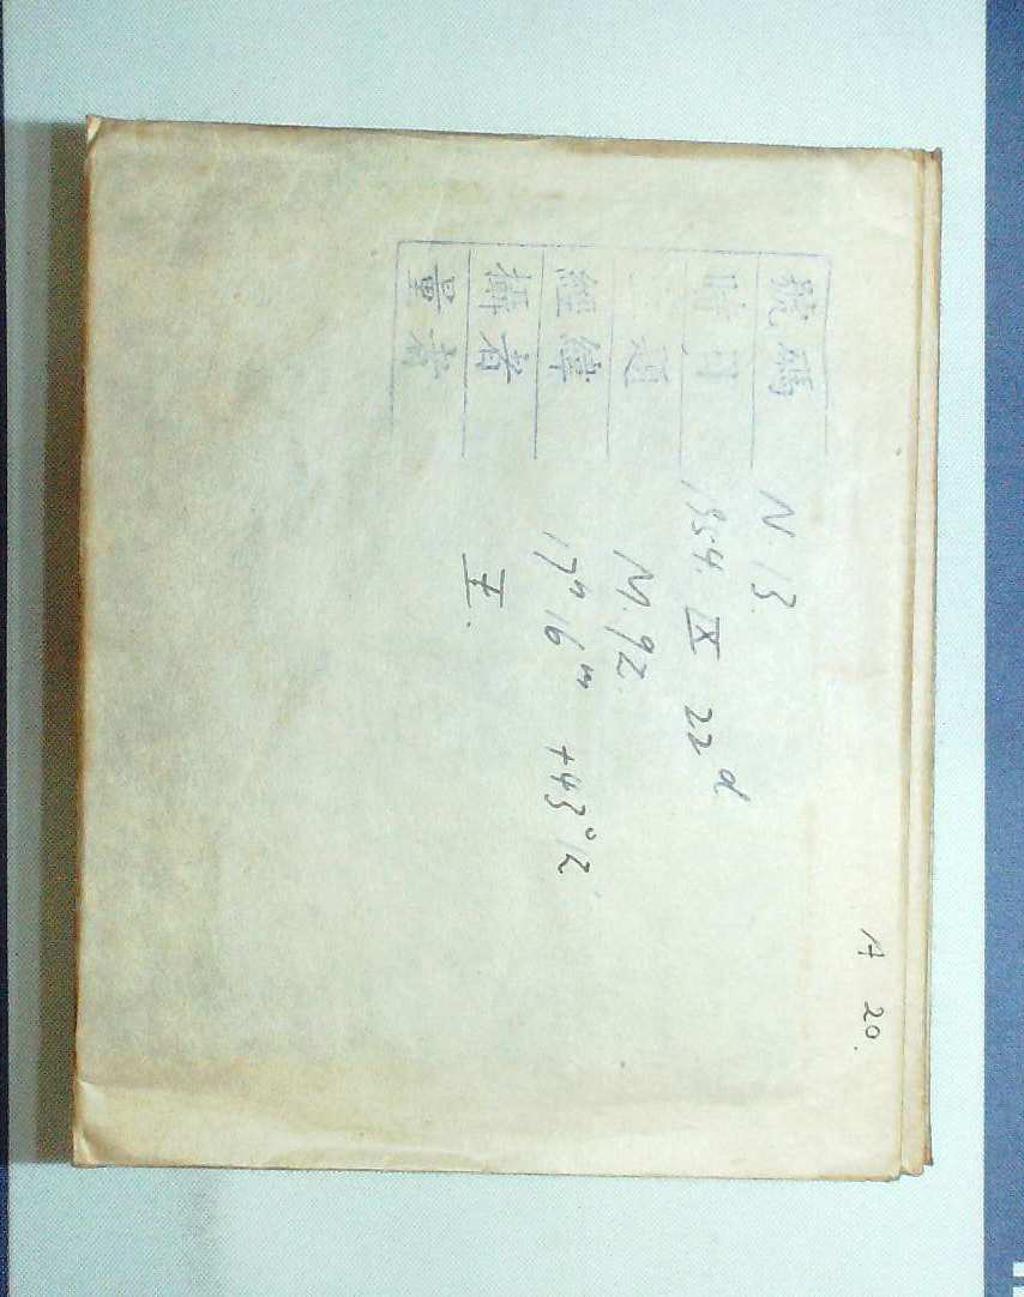 A 20.
號碼 N. 13.
時間 1954. IX 22ᵈ
題 M. 92.
經緯 17ʰ 16ᵐ +43°12'
攝者 王.
量者